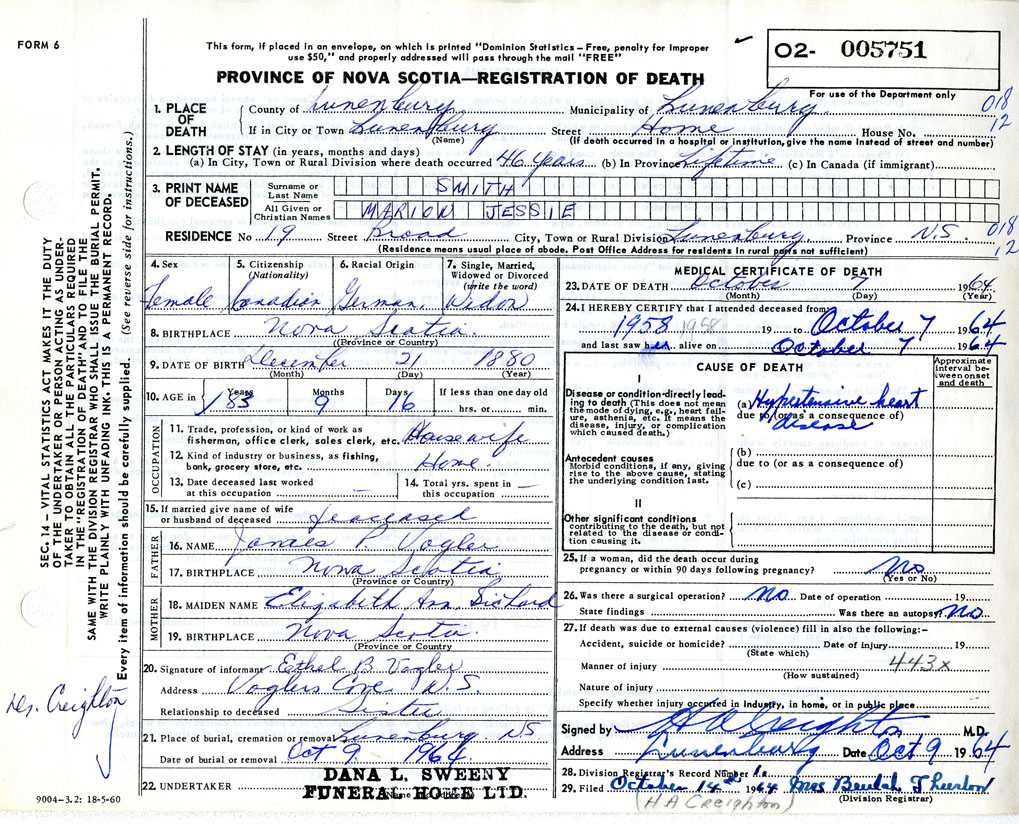 FORM 6
This form, if placed in an envelope, on which is printed "Dominion Statistics – Free, penalty for improper
use $50," and properly addressed will pass through the mail "FREE"
O2- 005751
PROVINCE OF NOVA SCOTIA—REGISTRATION OF DEATH
For use of the Department only
018
12
1. PLACE OF DEATH
County of Lunenburg Municipality of Lunenburg
If in City or Town Lunenburg Street Home House No.
(Name) (If death occurred in a hospital or institution, give the name instead of street and number)
2. LENGTH OF STAY (in years, months and days)
(a) In City, Town or Rural Division where death occurred 46 years (b) In Province Lifetime (c) In Canada (if immigrant)
3. PRINT NAME OF DECEASED
Surname or Last Name SMITH
All Given or Christian Names MARION JESSIE
RESIDENCE No 19 Street Broad City, Town or Rural Division Lunenburg, Province N.S.
018
12
(Residence means usual place of abode. Post Office Address for residents in rural parts not sufficient)
4. Sex Female
5. Citizenship (Nationality) Canadian
6. Racial Origin German,
7. Single, Married, Widowed or Divorced (write the word) Widow
8. BIRTHPLACE Nova Scotia
(Province or Country)
9. DATE OF BIRTH December 21 1880
(Month) (Day) (Year)
10. AGE in Years 83 Months 9 Days 16 If less than one day old hrs. or min.
OCCUPATION
11. Trade, profession, or kind of work as fisherman, office clerk, sales clerk, etc. Housewife
12. Kind of industry or business, as fishing, bank, grocery store, etc. Home.
13. Date deceased last worked at this occupation —
14. Total yrs. spent in this occupation —
15. If married give name of wife or husband of deceased deceased
FATHER
16. NAME James P. Vogler
17. BIRTHPLACE Nova Scotia
(Province or Country)
MOTHER
18. MAIDEN NAME Elizabeth Ann
19. BIRTHPLACE Nova Scotia.
(Province or Country
20. Signature of informant Ethel B. Vogler
Address Voglers Cove, N.S.
Relationship to deceased Sister
21. Place of burial, cremation or removal Lunenburg NS
Date of burial or removal Oct 9. 1964.
22. UNDERTAKER DANA L. SWEENY
FUNERAL HOME LTD.
9004–3.2: 18-5-60
MEDICAL CERTIFICATE OF DEATH
23. DATE OF DEATH October 7 1964
(Month) (Day) (Year)
24. I HEREBY CERTIFY that I attended deceased from
1958 1958 19 to October 7 1964
and last saw her alive on October 7 1964
CAUSE OF DEATH
Approximate interval between onset and death
I
Disease or condition directly leading to death (This does not mean the mode of dying, e.g., heart failure, asthenia, etc. It means the disease, injury, or complication which caused death.)
(a) Hypertensive heart
due to (or as a consequence of)
disease
Antecedent causes
Morbid conditions, if any, giving rise to the above cause, stating the underlying condition last.
(b)
due to (or as a consequence of)
(c)
II
Other significant conditions
contributing to the death, but not related to the disease or condition causing it.
25. If a woman, did the death occur during pregnancy or within 90 days following pregnancy? No
(Yes or No)
26. Was there a surgical operation? No. Date of operation 19
State findings Was there an autopsy? No.
27. If death was due to external causes (violence) fill in also the following:–
Accident, suicide or homicide? Date of injury 19
(State which)
Manner of injury 443x
(How sustained)
Nature of injury
Specify whether injury occurred in industry, in home, or in public place
Signed by H A Creighton M.D.
Address Lunenburg Date Oct 9 1964
28. Division Registrar's Record Number
29. Filed October 14th 1964 Mrs Beulah Thurlow
(H A Creighton) (Division Registrar)
SEC. 14 – VITAL STATISTICS ACT MAKES IT THE DUTY
OF THE UNDERTAKER OR PERSON ACTING AS UNDER-
TAKER TO OBTAIN ALL THE PARTICULARS REQUIRED
IN THE "REGISTRATION OF DEATH" AND TO FILE THE
SAME WITH THE DIVISION REGISTRAR WHO SHALL ISSUE THE BURIAL PERMIT.
WRITE PLAINLY WITH UNFADING INK. THIS IS A PERMANENT RECORD.
Every item of information should be carefully supplied. (See reverse side for instructions.)
Creighton